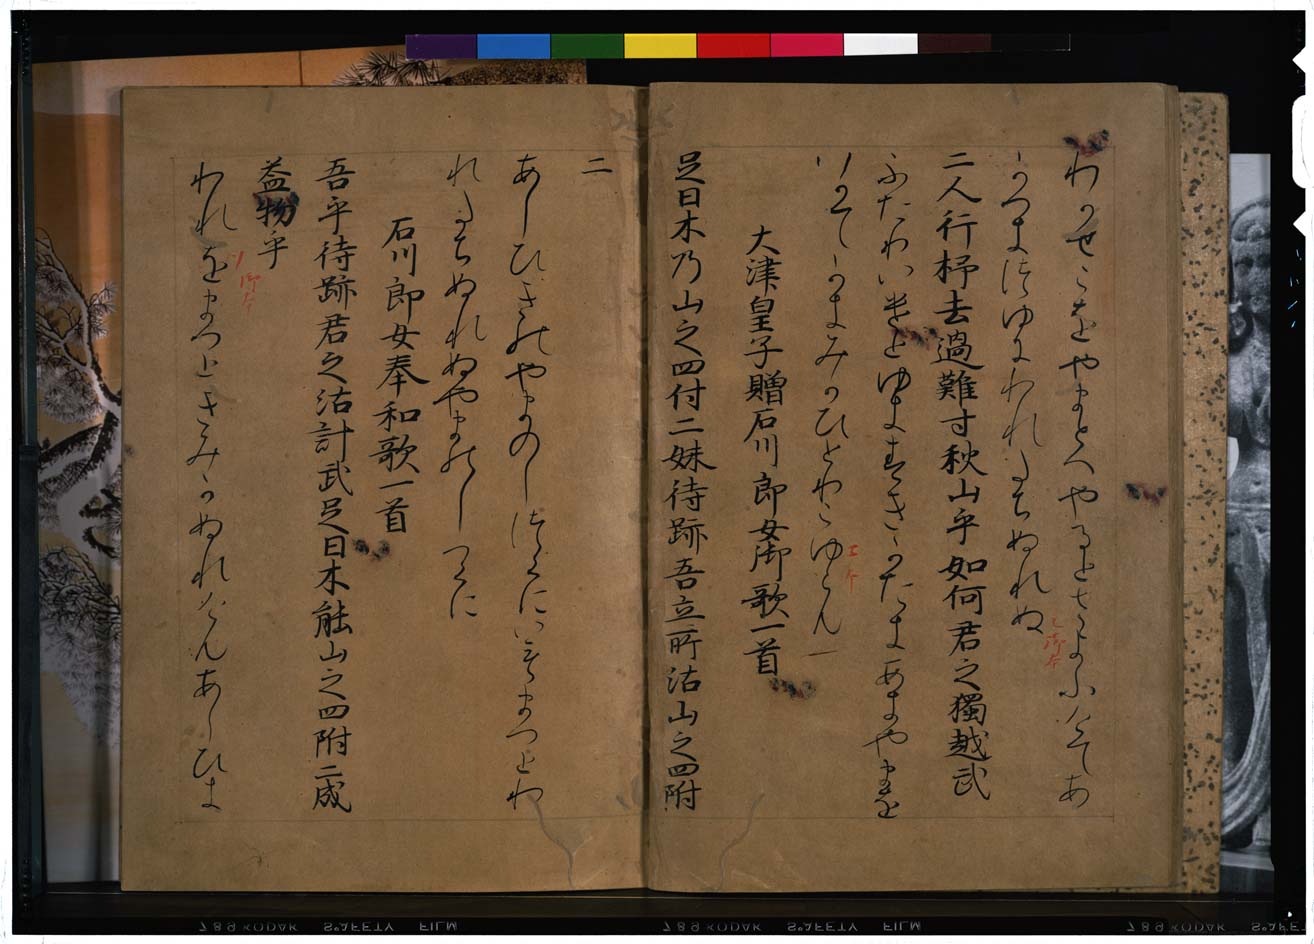 わかせこをやまとへやるとさよふけてあ
かつきつゆにわれたちぬれぬ
二人行杼去過難寸秋山乎如何君之獨越武
ふたりいけとゆきすきかたきあきやまを
いかてかきみかひとりこゆらん
大津皇子贈石川郎女御歌一首
足日木乃山之四付二妹待跡吾立所沾山之四附
二
あしひきのやまのしつくにいもまつとわ
れたちぬれぬやまのしつくに
石川郎女奉和歌一首
吾乎待跡君之沾計武足日木能山之四附二成
益物乎
われをまつときみかぬれけんあしひき
789 KODAK SAFETY FILM
789 KODAK SAFETY FILM
789 KODAK SAFE